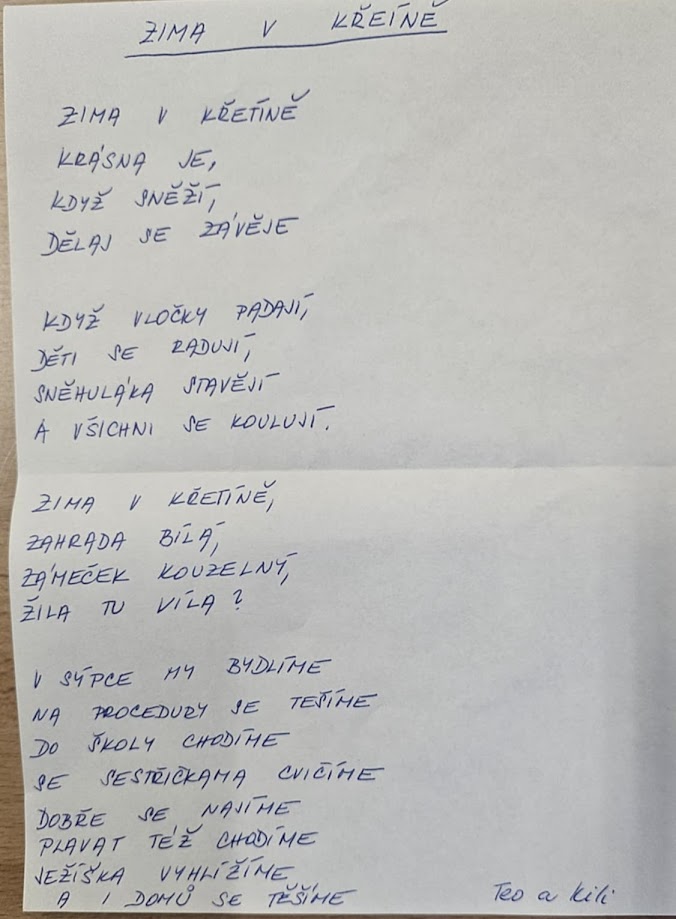 ZIMA V KŘETÍNĚ
ZIMA V KŘETÍNĚ
KRÁSNA JE,
KDYŽ SNĚŽÍ,
DĚLAJ SE ZÁVĚJE
KDYŽ VLOČKY PADAJÍ,
DĚTI SE RADUJÍ,
SNĚHULÁKA STAVĚJÍ
A VŠICHNI SE KOULUJÍ.
ZIMA V KŘETÍNĚ,
ZAHRADA BÍLÁ,
ZÁMEČEK KOUZELNÝ,
ŽILA TU VÍLA?
V SÝPCE MY BYDLÍME
NA PROCEDURY SE TEŠÍME
DO ŠKOLY CHODÍME
SE SESTŘIČKAMA CVIČÍME
DOBŘE SE NAJÍME
PLAVAT TÉŽ CHODÍME
JEŽÍŠKA VYHLÍŽÍME
A I DOMŮ SE TĚŠÍME
Teo a Kili